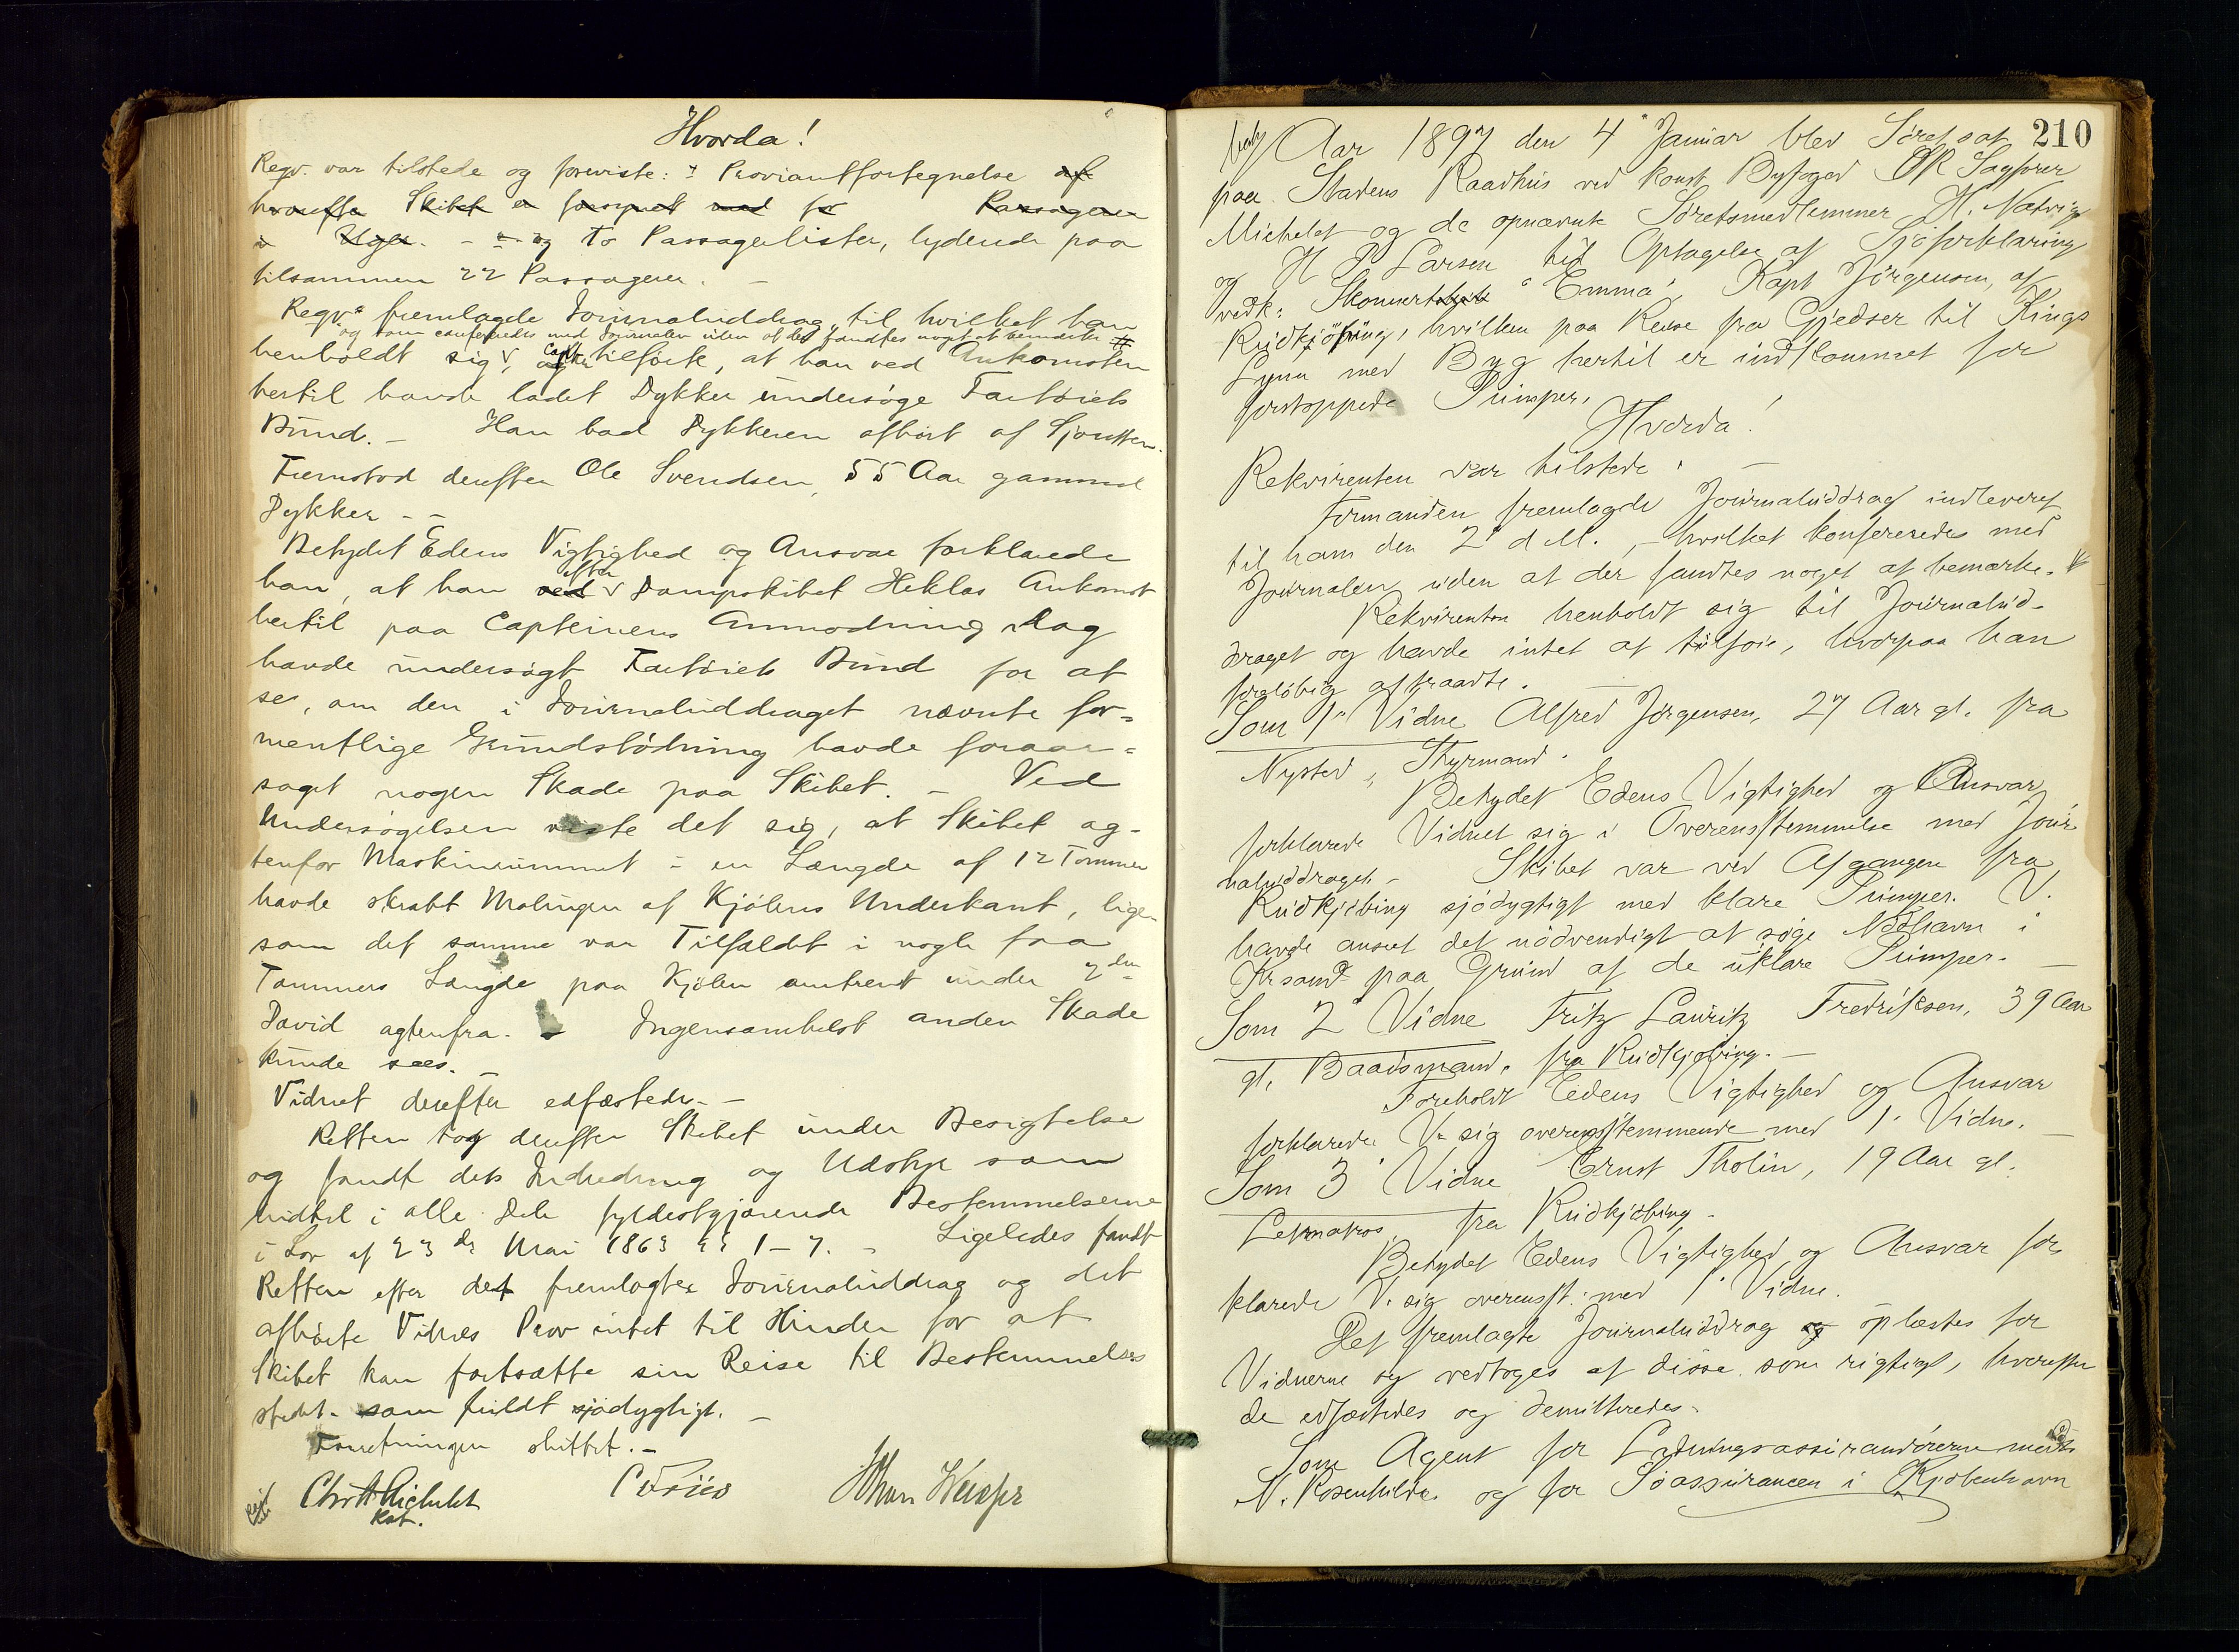 Hvorda!
Reqv. var tilstede og foreviste: 1 Proviantfortegnelse af
hvorefter Skibet er forsynet med for Passagerer
i Uger. - og to Passagerlister, lydende paa
tilsammen 22 Passagerer. -
Reqv. fremlagde Journaluddrag, til hvilket han
og som confereredes med Journalen uden at der fandtes nogt at bemærke
henholdt sig, Capt. tilføiet, at han ved Ankomsten
hertil havde ladet Dykker undersøge Fartøiets
Bund. - Han bad Dykkeren afhørt af Sjøretten.
Fremstod derefter Ole Svendsen, 55 Aar gammel
Dykker - -
Betydet Edens Vigtighed og Ansvar forklarede
han, at han ved efter Dampskibet Heklas Ankomst
hertil paa Capteinens Anmodning Dag
havde undersøgt Fartøiets Bund for at
se, om den i Journaluddraget nævnte for-
mentlige Grundstødning havde foraar-
saget nogen Skade paa Skibet. - Ved
Undersøgelsen viste det sig, at Skibet ag-
tenfor Maskinrummet i en Længde af 12 Tommer
havde skrabt Malingen af Kjølens Underkant, lige
som det samme var Tilfældet i nogle faa
Tommers Længde paa Kjølen omtrent under 2den
David agtenfra. - Ingensomhelst anden Skade
kunde sees. -
Vidnet derefter edfæstedes. -
Retten tog derefter Skibet under Besigtelse
og fandt dets Indredning og Udstyr som
hidtil i alle Dele fyldestgjørende Bestemmelserne
i Lov af 23de Mai 1863 §§ 1-7. - Ligeledes fandt
Retten efter det fremlagte Journaluddrag og det
afhørte Vidnes Prov intet til Hinder for at
Skibet kan fortsætte sin Reise til Bestemmelses
stedet som fuldt sjødygtigt. -
Forretningen sluttet. -
Chr A Michelet
Kst.
Johan Keiser
210
Aar 1897 den 4 Januar blev Söret sat
paa Stadens Raadhus ved konst Byfoged OR Sagförer
Michelet og de opnævnte Söretsmedlemmer H. Natvig
og H P Larsen til Optagelse af Sjöforklaring
vedk: Skonnert "Emma", Kapt Jörgensen, af
Rudkjöbing, hvilken paa Reise fra Gjedser til Kings
Lynn med Byg hertil er indkommet for
forstoppede Pumper.
Hvorda!
Rekvirenten var tilstede. -
Formanden fremlagde Journaluddrag indleveret
til ham den 2 d M., hvilket konfereredes med
Journalen uden at der fandtes noget at bemærke.
Rekvirenten henholdt sig til Journalud-
draget og havde intet at tilföie, hvorpaa han
foreløbig aftraadte. -
Som 1 Vidne Alfred Jörgensen, 27 Aar gl. fra
Nysted, Styrmand.
Betydet Edens Vigtighed og Ansvar
forklarede Vidnet sig i Overensstemmelse med Jour
naluddraget - Skibet var ved Afgangen fra
Rudkjöbing sjödygtigt med klare Pumper. V.
havde anseet det nödvendigt at söge Nödhavn i
Krsand paa Grund af de uklare Pumper. -
Som 2 Vidne Fritz Lauritz Fredriksen, 39 Aar
gl. Baadsmand, fra Rudkjöbing. -
Foreholdt Edens Vigtighed og Ansvar
forklarede V. sig overensstemmende med 1. Vidne. -
Som 3 Vidne Ernst Tholin, 19 Aar gl.
Letmatros fra Rudkjöbing -
Betydet Edens Vigtighed og Ansvar for
klarede V. sig overensst. med 1 Vidne.
Det fremlagte Journaluddrag og oplæstes for
Vidnerne og vedtoges af disse som rigtigt, hvorefter
de edfæstedes og demitteredes.
Som Agent for Ladningsassurandörerne mödte
N. Rosenkilde og for Söassurancen i Kjöbenhavn